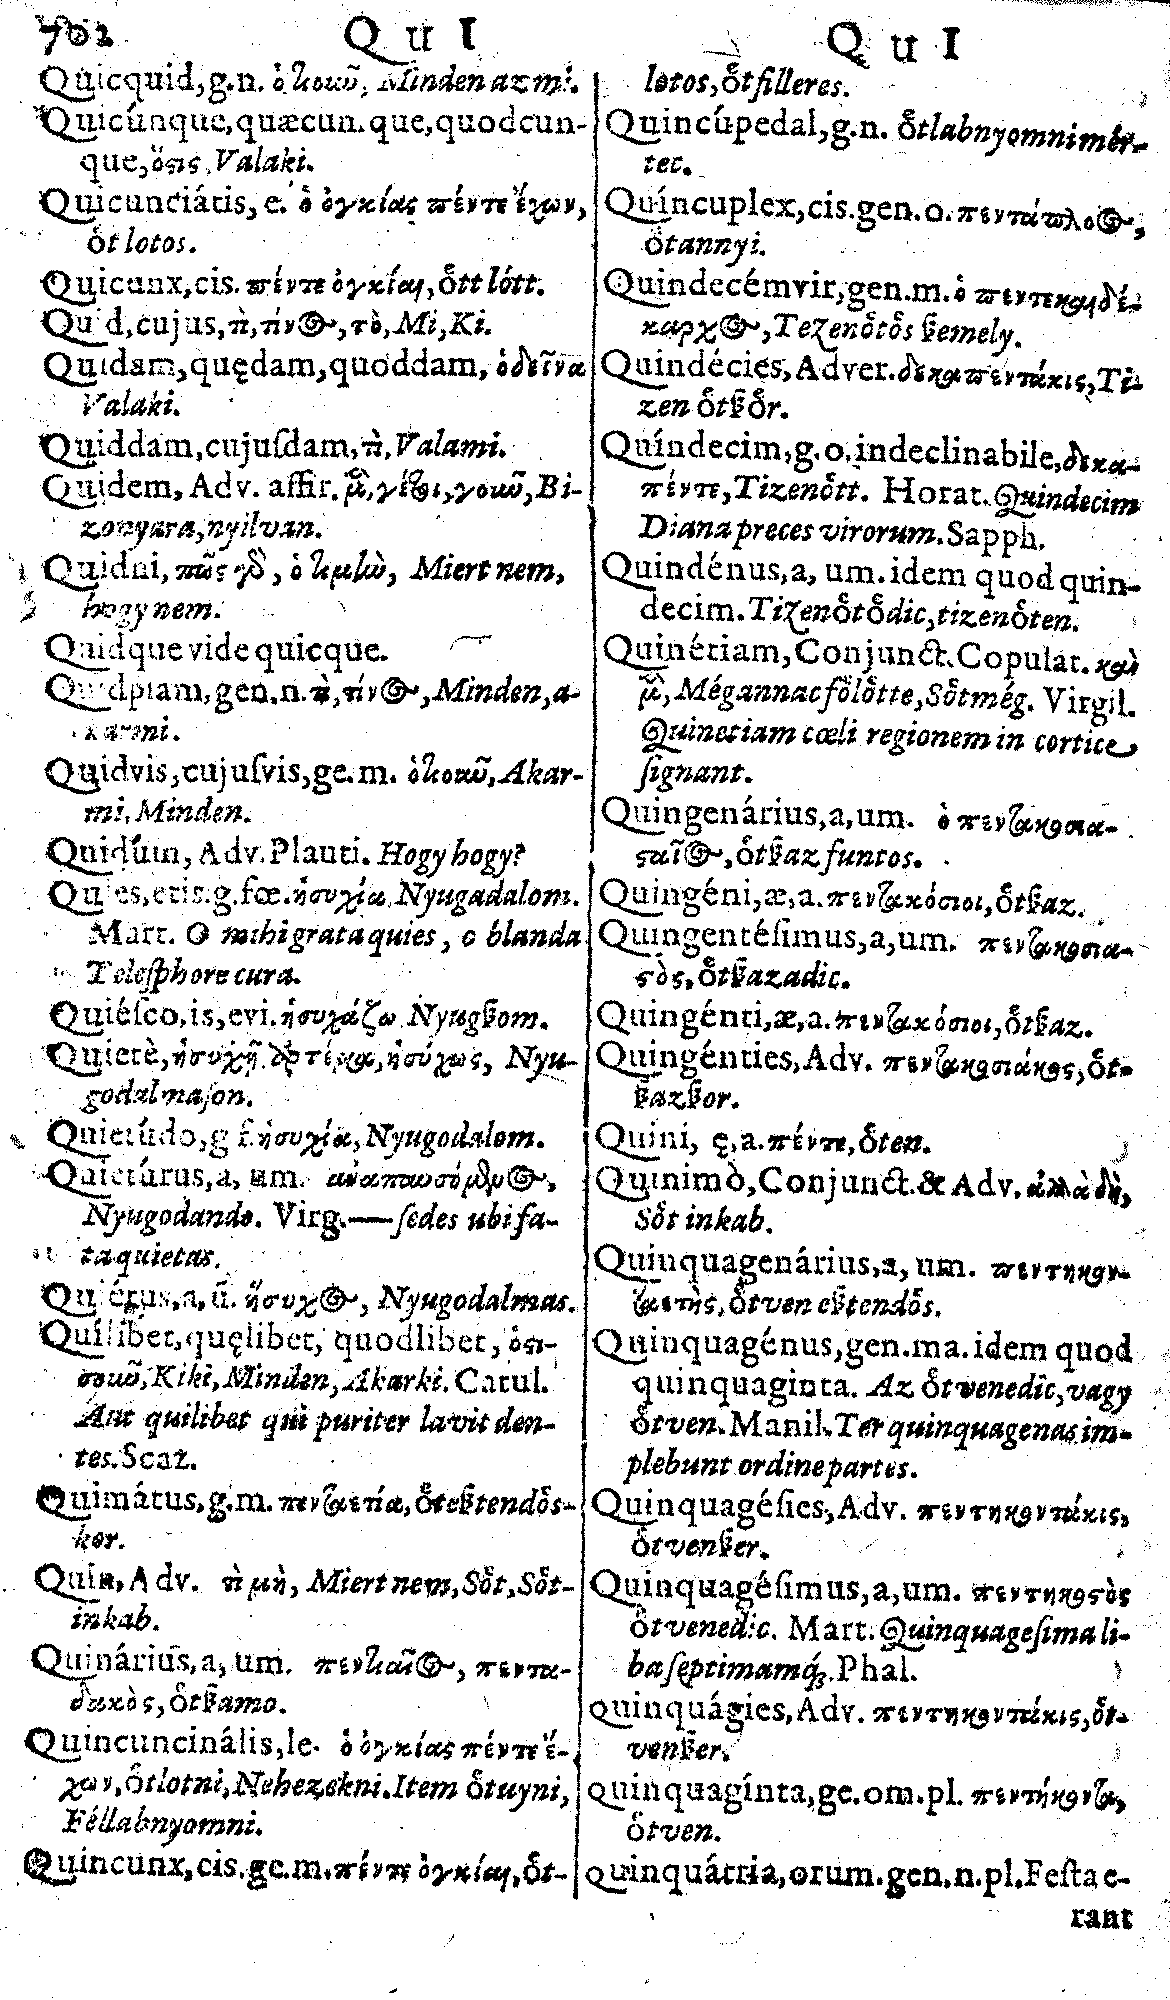 702 QuI QuI
Quicquid, g.n. ὁτιοιοῦν, Minden az mi.
Quicúnque, quæcun. que, quodcun-
que, ὅστις, Valaki.
Quicunciátis, e. ὁ ὀγκίας πέντε ἔχων,
ŏt lotos.
Quicunx, cis. πέντε ὀγκίαι, ŏtt lótt.
Quid, cujus, τὶ, τίνος, τὸ, Mi, Ki.
Quidam, quędam, quoddam, ὁδεῖνα
Valaki.
Quiddam, cujuſdam, τὶ, Valami.
Quidem, Adv. affir. μὲν, γοιῶ, Bi-
zonyara, nyilvan.
Quidni, πῶς γὸ, Miert nem,
hogy nem.
Quidque vide quicque.
Quidpiam, gen. n. τὶ, τίνος, Minden, a-
karmi.
Quidvis, cujuſvis, ge. m. ὁτιοιοῦν, Akar-
mi, Minden.
Quidúm, Adv. Plauti. Hogy hogy?
Quies, etis. g. fœ. ἡσυχία, Nyugadalom.
Mart. O mihi grata quies, o blanda
Teleſphore cura.
Quiéſco, is, evi. ἡσυχάζω Nyugßom.
Quietè, ἡσυχῆ ἡσύχως, Nyu-
godalmaſon.
Quietúdo, g f. ἡσυχία, Nyugodalom.
Quietúrus, a, um. ἀναπαυσόμενος,
Nyugodando. Virg.— ſedes ubi fa-
ta quietas.
Quiétus, a, ū. ἥσυχος, Nyugodalmas.
Quílibet, quęlibet, quodlibet, ὁςι-
σοιῶ, Kiki, Minden, Akarki. Catul.
Aut quilibet qui puriter lavit den-
tes. Scaz.
Quimátus, g. m. πενταετία, ŏteßtendŏs-
kor.
Quin, Adv. τὶ μὴ, Miert nem, Sŏt, Sŏt-
inkab.
Quinárius, a, um. πενταῖος, πεντα-
δικὸς, ŏtßamo.
Quincunciális, le. ὁ ὀγκίας πέντε ἔ-
χων, ŏtlotni, Nehezekni. Item ŏtuyni,
Féllabnyomni.
Quíncunx, cis. ge. m. πέντε ὀγκίαι, ŏt-
lotos, ŏtfilleres.
Quincúpedal, g. n. ŏtlabnyomni mér-
tec.
Quíncuplex, cis. gen. o. πεντάπλοος,
ŏtannyi.
Quindecémvir, gen. m. ὁ πεντεκαιδέ-
καρχος, Tezenŏtŏs ßemely.
Quindécies, Adver. δεκαπεντάκις, Ti-
zen ŏtßŏr.
Quíndecim, g. o. indeclinabile, δεκα-
πέντε, Tizenŏtt. Horat. Quindecim
Diana preces virorum. Sapph.
Quindénus, a, um. idem quod quin-
decim. Tizenŏtŏdic, tizenŏten.
Quinétiam, Conjunct. Copulat. καὶ
μὲν, Mégannac fŏlŏtte, Sŏtmég. Virgil.
Quinetiam cœli regionem in cortice
ſignant.
Quingenárius, a, um. ὁ πεντακοσια-
ςαῖος, ŏtßaz funtos.
Quingéni, æ, a. πεντακόσιοι, ŏtßaz.
Quingentéſimus, a, um. πεντακοσια-
ςὸς, ŏtßazadic.
Quingénti, æ, a. πεντακόσιοι, ŏtßaz.
Quingénties, Adv. πεντακοσιάκις, ŏt-
ßazßor.
Quini, ę, a. πέντε, ŏten.
Quinimò, Conjunct. & Adv. ἀλλὰ δὴ,
Sŏt inkab.
Quinquagenárius, a, um. πεντηκον-
ταετὴς, ŏtven eßtendŏs.
Quinquagénus, gen. ma. idem quod
quinquaginta. Az ŏtvenedic, vagy
ŏtven. Manil. Ter quinquagenas im-
plebunt ordine partes.
Quinquagéſies, Adv. πεντηκοντάκις,
ŏtvenßer.
Quinquagéſimus, a, um. πεντηκοςὸς
ŏtvenedic. Mart. Quinquageſima li-
ba ſeptimamq́;. Phal.
Quinquágies, Adv. πεντηκοντάκις, ŏt-
venßer.
Quinquagínta, ge. om. pl. πεντήκοντα,
ŏtven.
Quinquátria, orum. gen. n. pl. Feſta e-
rant